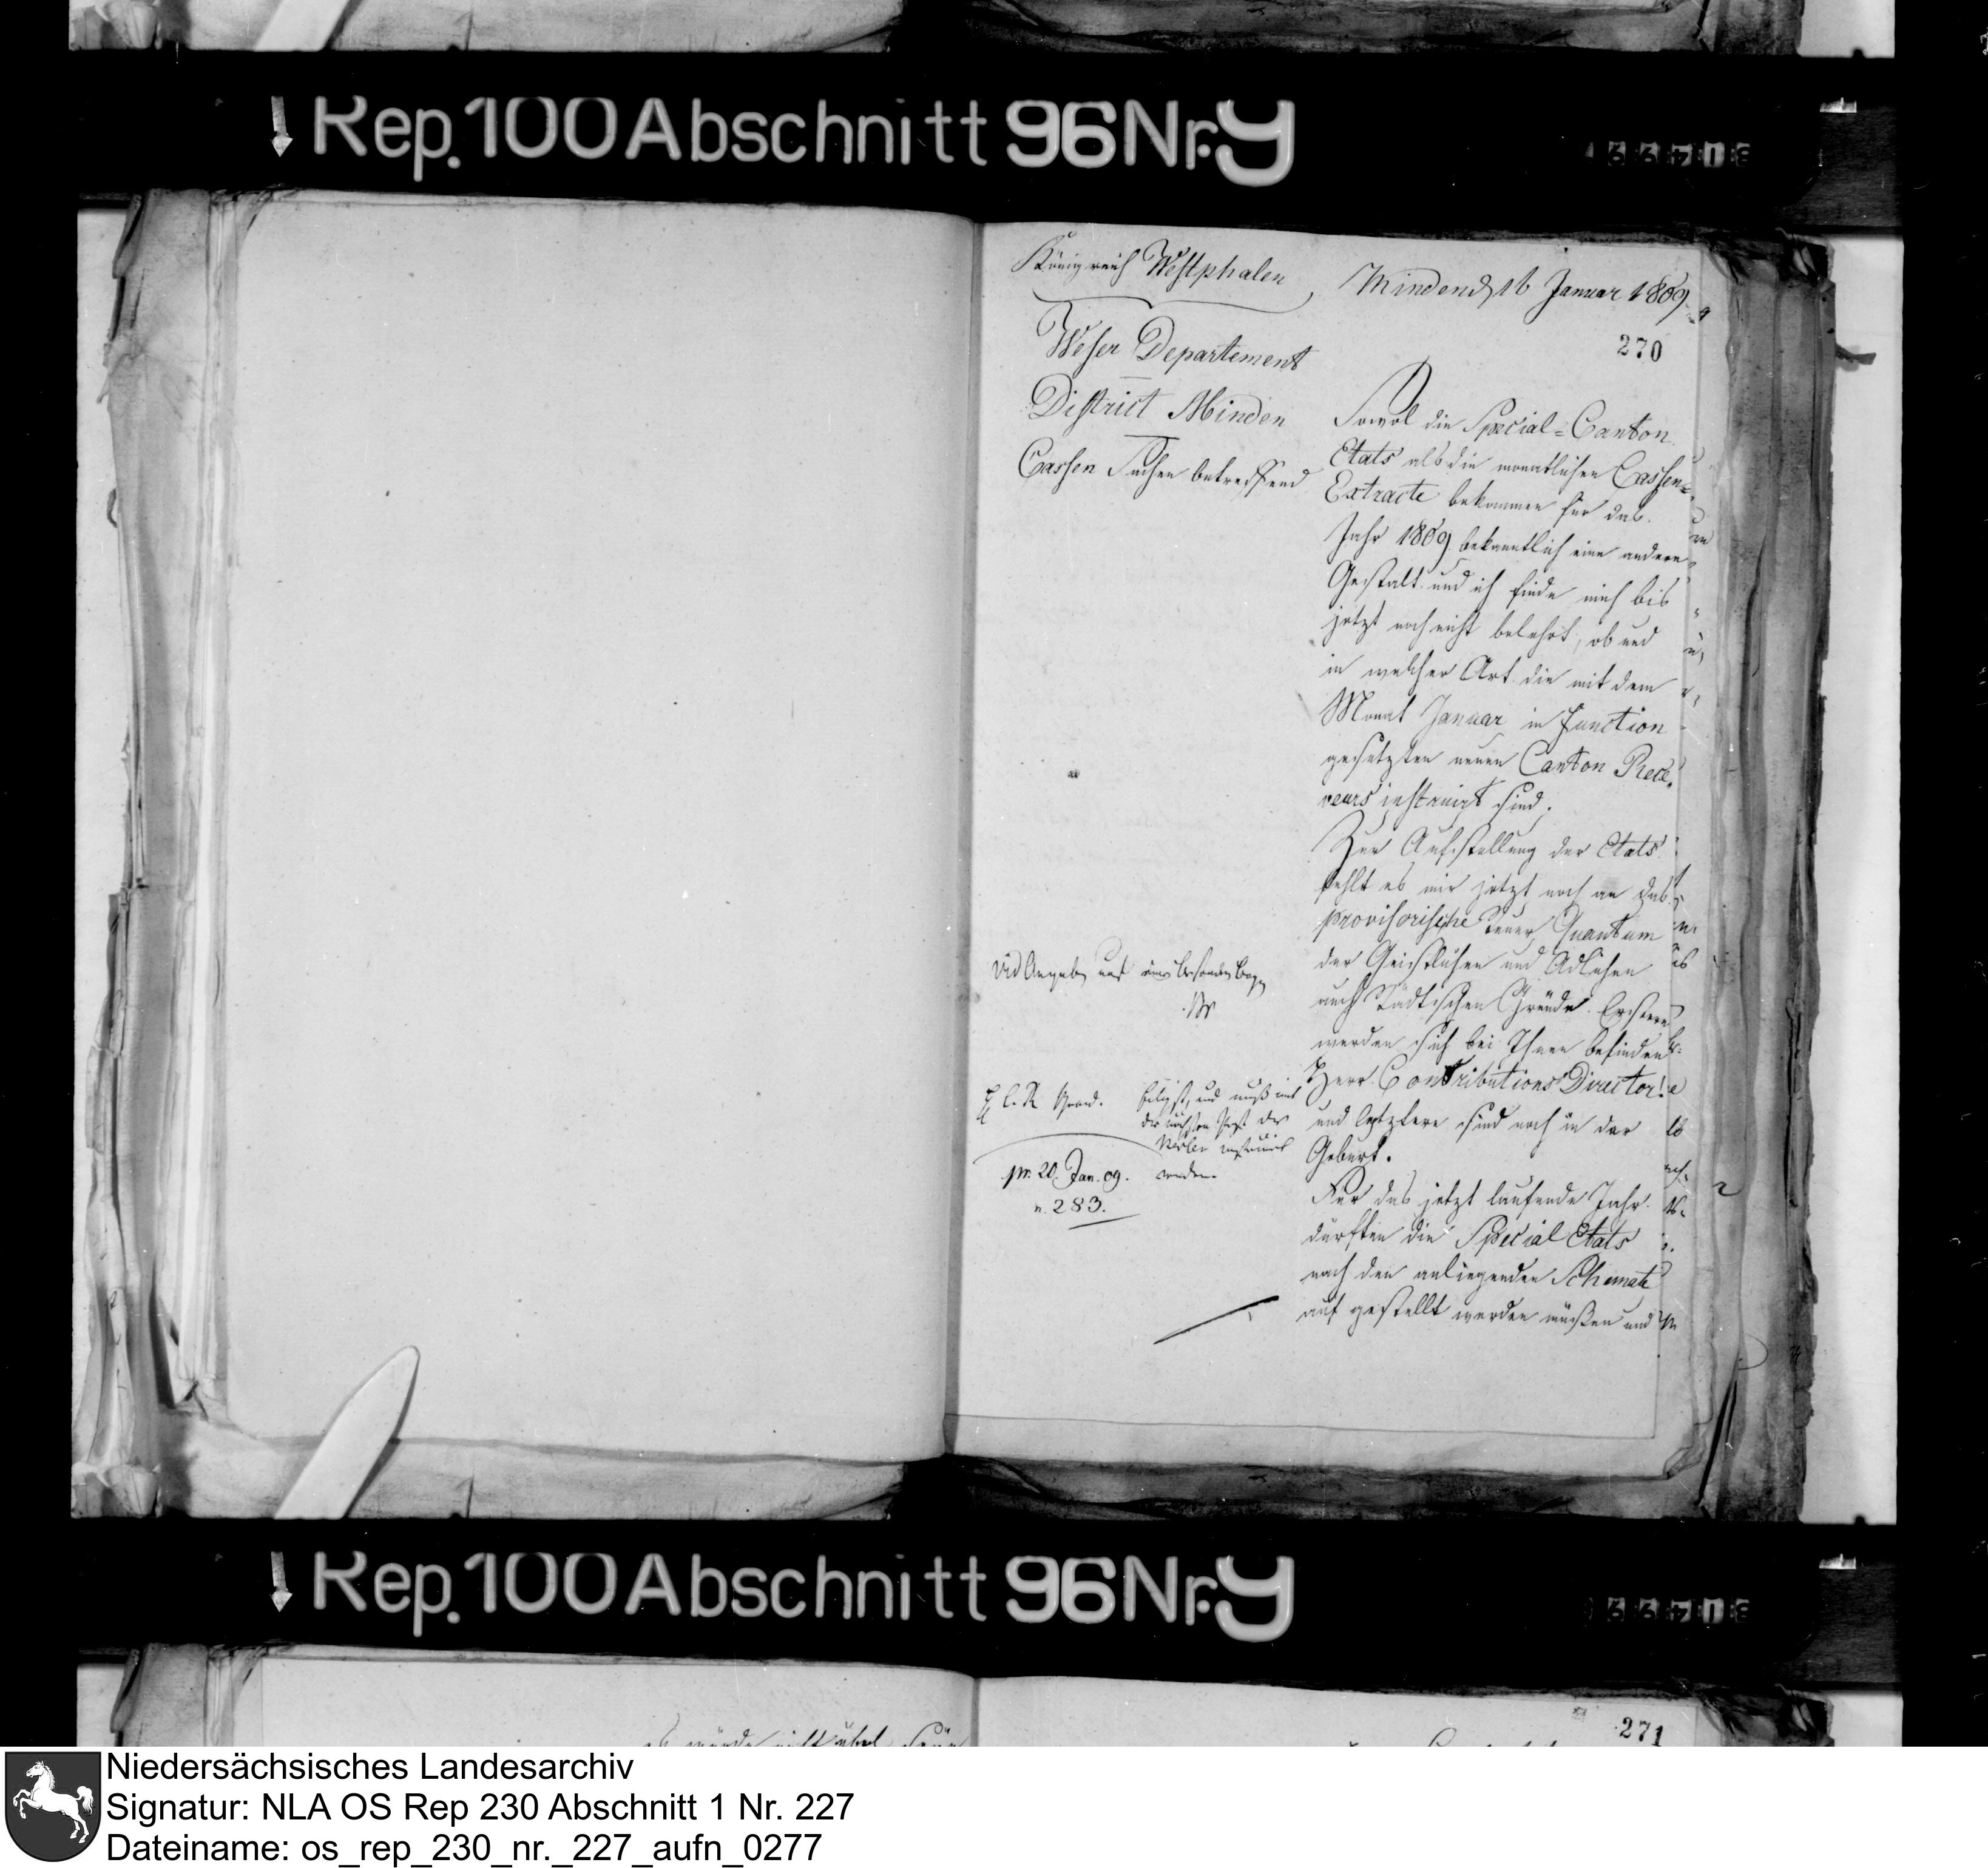 Rep. 100 Abschnitt 96 Nr. 9
Königreich Westphalen
Minden d 16 Januar 1809
270
Weser Departement
District Minden
Cassen Sachen betreffend
Sowol die Special-Canton
Etats als die monatlichen Cassen-
Extracte bekommen für das
Jahr 1809 bekanntlich eine andere
Gestalt und ich finde mich bis
jetzt noch nicht belehrt, ob und
in welcher Art die mit dem
Monat Januar in Function
gesetzten neuen Canton Rece-
veurs instruirt sind.
Zur Aufstellung der Etats
fehlt es mir jetzt noch an das
provisorische Steuer Quantum
der Geistlichen und Adlichen
auch Städtischen Gründe. Erstere
werden sich bei Ihnen befinden
Herr Contributions Director!
und letztere sind noch in der
Geburt.
Für das jetzt laufende Jahr
dürften die Special Etats
nach den anliegenden Schemate
auf gestellt werden müßen und
pr. 20. Jan. 09.
n. 283.
werden.
Rep. 100 Abschnitt 96 Nr. 9
271
Niedersächsisches Landesarchiv
Signatur: NLA OS Rep 230 Abschnitt 1 Nr. 227
Dateiname: os_rep_230_nr._227_aufn_0277